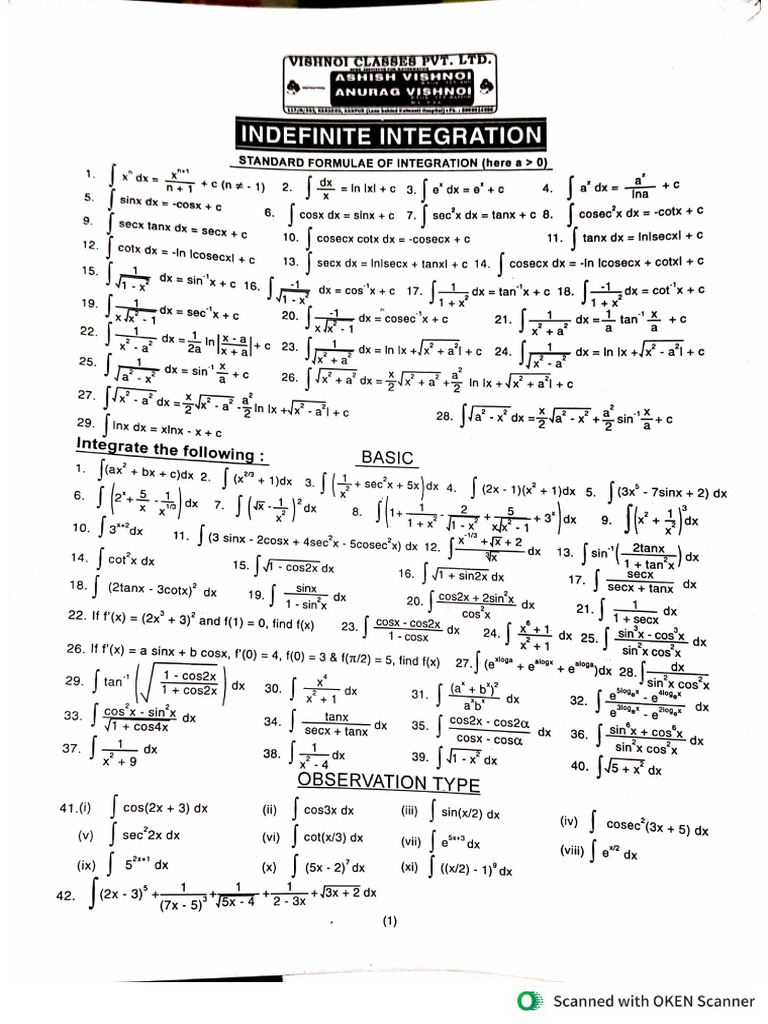 VISHNOI CLASSES PVT. LTD.
ASHISH VISHNOI
ANURAG VISHNOI
INDEFINITE INTEGRATION
STANDARD FORMULAE OF INTEGRATION (here a > 0)
1. ∫ xⁿ dx = xⁿ⁺¹/(n + 1) + c (n ≠ - 1) 2. ∫ dx/x = ln |x| + c 3. ∫ eˣ dx = eˣ + c 4. ∫ aˣ dx = aˣ/lna + c
5. ∫ sinx dx = -cosx + c 6. ∫ cosx dx = sinx + c 7. ∫ sec²x dx = tanx + c 8. ∫ cosec²x dx = -cotx + c
9. ∫ secx tanx dx = secx + c 10. ∫ cosecx cotx dx = -cosecx + c 11. ∫ tanx dx = ln|secx| + c
12. ∫ cotx dx = -ln |cosecx| + c 13. ∫ secx dx = ln|secx + tanx| + c 14. ∫ cosecx dx = -ln |cosecx + cotx| + c
15. ∫ 1/√(1 - x²) dx = sin⁻¹x + c 16. ∫ -1/√(1 - x²) dx = cos⁻¹x + c 17. ∫ 1/(1 + x²) dx = tan⁻¹x + c 18. ∫ -1/(1 + x²) dx = cot⁻¹x + c
19. ∫ 1/(x√(x² - 1)) dx = sec⁻¹x + c 20. ∫ -1/(x√(x² - 1)) dx = cosec⁻¹x + c 21. ∫ 1/(x² + a²) dx = 1/a tan⁻¹ x/a + c
22. ∫ 1/(x² - a²) dx = 1/2a ln|(x - a)/(x + a)| + c 23. ∫ 1/√(x² + a²) dx = ln |x + √(x² + a²)| + c 24. ∫ 1/√(x² - a²) dx = ln |x + √(x² - a²)| + c
25. ∫ 1/√(a² - x²) dx = sin⁻¹ x/a + c 26. ∫ √(x² + a²) dx = x/2 √(x² + a²) + a²/2 ln |x + √(x² + a²)| + c
27. ∫ √(x² - a²) dx = x/2 √(x² - a²) - a²/2 ln |x + √(x² - a²)| + c 28. ∫ √(a² - x²) dx = x/2 √(a² - x²) + a²/2 sin⁻¹ x/a + c
29. ∫ lnx dx = xlnx - x + c
Integrate the following : BASIC
1. ∫(ax² + bx + c)dx 2. ∫ (x^(2/3) + 1)dx 3. ∫ (1/x² + sec²x + 5x)dx 4. ∫ (2x - 1)(x² + 1)dx 5. ∫ (3x⁵ - 7sinx + 2) dx
6. ∫ (2ˣ + 5/x - 1/x^(1/3))dx 7. ∫ (√x - 1/x²)² dx 8. ∫ (1 + 1/(1 + x²) - 2/√(1 - x²) + 5/(x√(x² - 1)) + 3ˣ)dx 9. ∫(x² + 1/x²)³dx
10. ∫ 3^(x+2)dx 11. ∫ (3 sinx - 2cosx + 4sec²x - 5cosec²x) dx 12. ∫ (x^(-1/3) + √x + 2)/∛x dx 13. ∫ sin⁻¹(2tanx/(1 + tan²x))dx
14. ∫ cot²x dx 15. ∫ √(1 - cos2x) dx 16. ∫ √(1 + sin2x) dx 17. ∫ secx/(secx + tanx) dx
18. ∫ (2tanx - 3cotx)² dx 19. ∫ sinx/(1 - sin²x) dx 20. ∫ (cos2x + 2sin²x)/cos²x dx 21. ∫ 1/(1 + secx) dx
22. If f'(x) = (2x³ + 3)² and f(1) = 0, find f(x) 23. ∫ (cosx - cos2x)/(1 - cosx) dx 24. ∫ (x⁶ + 1)/(x² + 1) dx 25. ∫ (sin³x - cos³x)/(sin²x cos²x) dx
26. If f'(x) = a sinx + b cosx, f'(0) = 4, f(0) = 3 & f(π/2) = 5, find f(x) 27. ∫(e^(xloga) + e^(alogx) + e^(aloga))dx 28. ∫ dx/(sin²x cos²x)
29. ∫ tan⁻¹(√((1 - cos2x)/(1 + cos2x))) dx 30. ∫ x⁴/(x² + 1) dx 31. ∫ (aˣ + bˣ)²/(aˣbˣ) dx 32. ∫ (e^(5logₑx) - e^(4logₑx))/(e^(3logₑx) - e^(2logₑx)) dx
33. ∫ (cos²x - sin²x)/√(1 + cos4x) dx 34. ∫ tanx/(secx + tanx) dx 35. ∫ (cos2x - cos2α)/(cosx - cosα) dx 36. ∫ (sin⁶x + cos⁶x)/(sin²x cos²x) dx
37. ∫ 1/(x² + 9) dx 38. ∫ 1/(x² - 4) dx 39. ∫ √(1 - x²) dx 40. ∫ √(5 + x²) dx
OBSERVATION TYPE
41.(i) ∫ cos(2x + 3) dx (ii) ∫ cos3x dx (iii) ∫ sin(x/2) dx (iv) ∫ cosec²(3x + 5) dx
(v) ∫ sec²2x dx (vi) ∫ cot(x/3) dx (vii) ∫ e^(5x+3) dx (viii) ∫ e^(x/2) dx
(ix) ∫ 5^(2x+1) dx (x) ∫ (5x - 2)⁷ dx (xi) ∫ ((x/2) - 1)⁹ dx
42. ∫ (2x - 3)⁵ + 1/(7x - 5)³ + 1/√(5x - 4) + 1/(2 - 3x) + √(3x + 2) dx
(1)
Scanned with OKEN Scanner